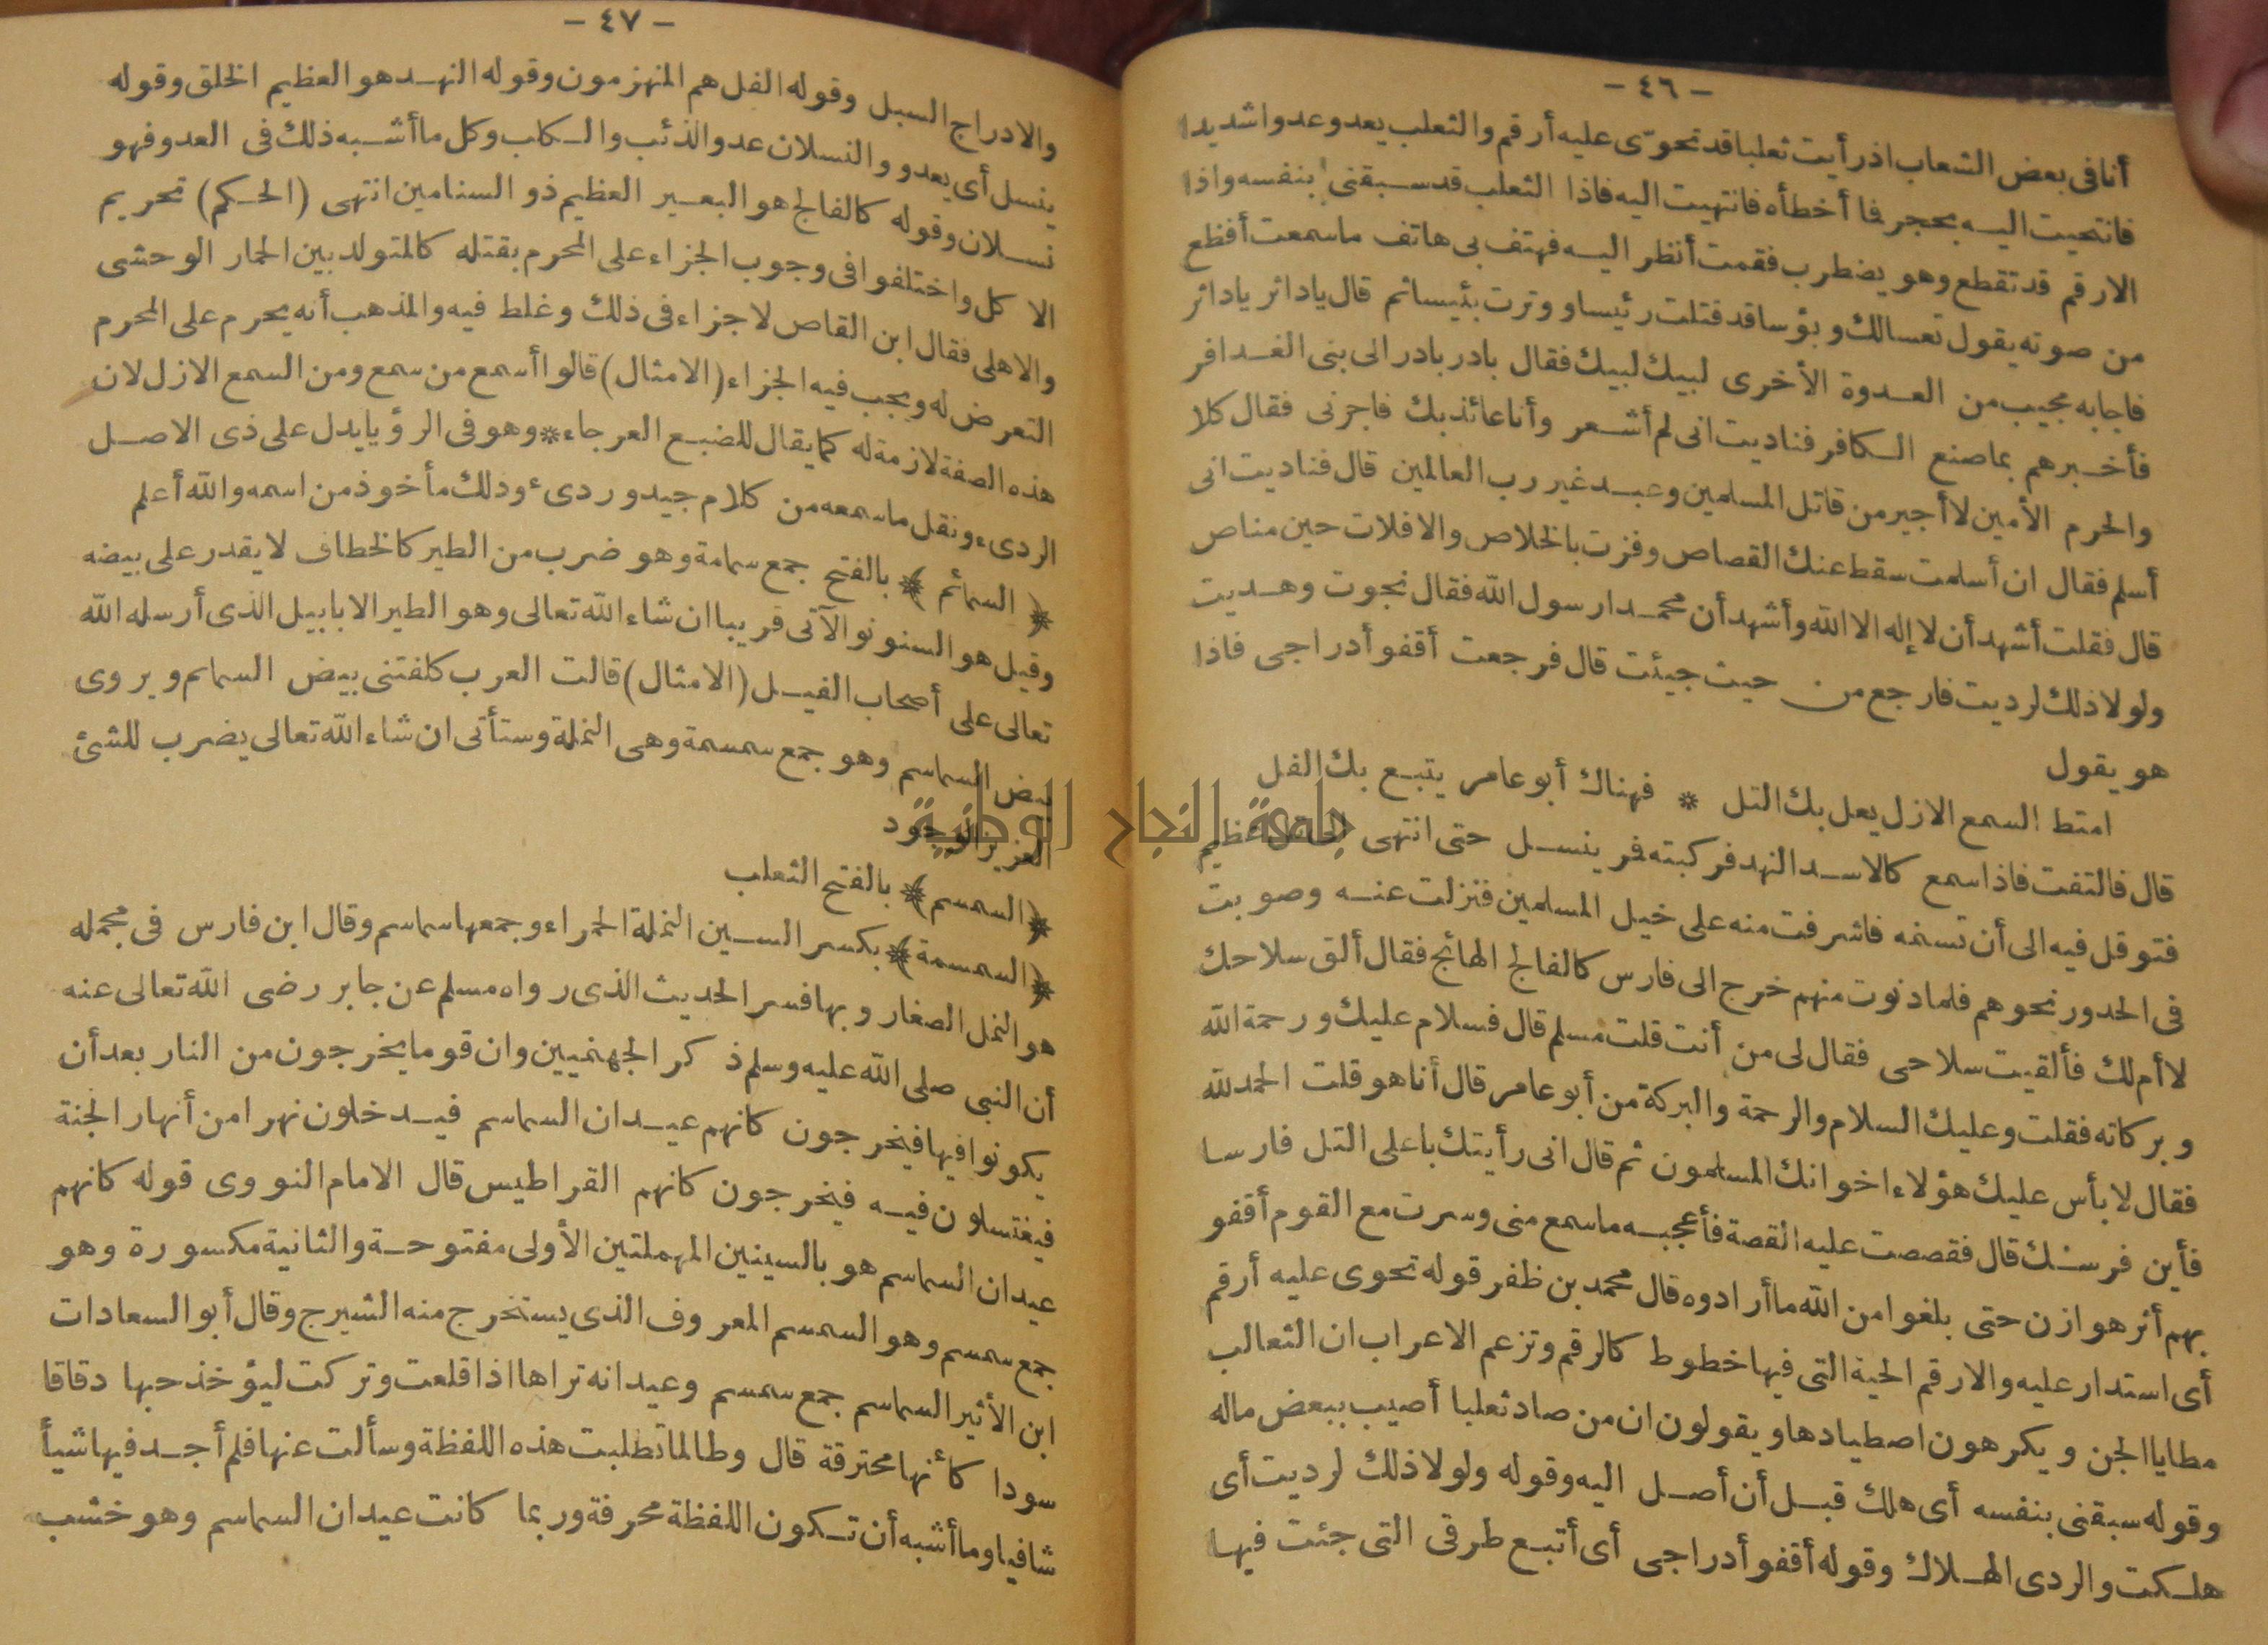 - ٤٦ -
أنا فى بعض الشعاب اذ رأيت ثعلبا قد تحوّى عليه أرقم والثعلب يعدو عدوا شديدا
فانتحيت اليه بحجر فما أخطأه فانتهيت اليه فاذا الثعلب قد سبقنى بنفسه واذا
الارقم قد تقطع وهو يضطرب فقمت أنظر اليه فهتف بى هاتف ما سمعت أفظع
من صوته يقول تعسالك وبؤسا قد قتلت رئيسا ووترت بئيسا ثم قال يا داثر يا داثر
فاجابه مجيب من العدوة الأخرى لبيك لبيك فقال بادر بادر الى بنى الغدافر
فأخبرهم بما صنع الكافر فناديت انى لم أشعر وأنا عائذ بك فاجرنى فقال كلا
والحرم الأمين لا أجير من قاتل المسلمين وعبد غير رب العالمين قال فناديت انى
أسلم فقال ان أسلمت سقط عنك القصاص وفزت بالخلاص والا فلات حين مناص
قال فقلت أشهد أن لا إله الا الله وأشهد أن محمدا رسول الله فقال نجوت وهديت
ولولا ذلك لرديت فارجع من حيث جيئت قال فرجعت أقفو أدراجى فاذا
هو يقول
امتط السمع الازل يعل بك التل * فهناك أبو عامر يتبع بك الفل
قال فالتفت فاذا سمع كالاسد النهد فركبته فر ينسل حتى انتهى الى تل عظيم
فتوقل فيه الى أن تسنمه فاشرفت منه على خيل المسلمين فنزلت عنه وصوبت
فى الحدور نحوهم فلما دنوت منهم خرج الى فارس كالفالج الهائج فقال ألق سلاحك
لا أم لك فألقيت سلاحى فقال لى من أنت قلت مسلم قال فسلام عليك ورحمة الله
وبركاته فقلت وعليك السلام والرحمة والبركة من أبو عامر قال أنا هو قلت الحمد لله
فقال لا بأس عليك هؤلاء اخوانك المسلمون ثم قال انى رأيتك باعلى التل فارسا
فأين فرسك قال فقصصت عليه القصة فأعجبه ما سمع منى وسرت مع القوم أقفو
بهم أثر هوازن حتى بلغوا من الله ما أرادوه قال محمد بن ظفر قوله تحوى عليه أرقم
أى استدار عليه والارقم الحية التى فيها خطوط كالرقم وتزعم الاعراب ان الثعالب
مطايا الجن ويكرهون اصطيادها ويقولون ان من صاد ثعلبا أصيب ببعض ماله
وقوله سبقنى بنفسه أى هلك قبل أن أصل اليه وقوله ولولا ذلك لرديت أى
هلكت والردى الهلاك وقوله أقفو أدراجى أى أتبع طرقى التى جئت فيها
- ٤٧ -
والادراج السبل وقوله الفل هم المنهزمون وقوله النهد هو العظيم الخلق وقوله
ينسل أى يعدو والنسلان عدو الذئب والكاب وكل ما أشبه ذلك فى العدو فهو
نسلان وقوله كالفالج هو البعير العظيم ذو السنامين انتهى (الحكم) تحريم
الا كل واختلفوا فى وجوب الجزاء على المحرم بقتله كالمتولد بين الحمار الوحشى
والاهلى فقال ابن القاص لا جزاء فى ذلك وغلط فيه والمذهب أنه يحرم على المحرم
التعرض له ويجب فيه الجزاء (الامثال) قالوا أسمع من سمع ومن السمع الازل لان
هذه الصفة لازمة له كما يقال للضبع العرجاء * وهو فى الرؤيا يدل على ذى الاصل
الردىء ونقل ما سمعه من كلام جيد وردىء وذلك مأخوذ من اسمه والله أعلم
﴿ السمائم ﴾ بالفتح جمع سمامة وهو ضرب من الطير كالخطاف لا يقدر على بيضه
وقيل هو السنونو الآتى قريبا ان شاء الله تعالى وهو الطير الابابيل الذى أرسله الله
تعالى على أصحاب الفيل (الامثال) قالت العرب كلفتنى بيض السمائم ويروى
بيض السماسم وهو جمع سمسمة وهى النملة وستأتى ان شاء الله تعالى يضرب للشئ
العزيز الوجود
﴿ السمسم ﴾ بالفتح الثعلب
﴿ السمسمة ﴾ بكسر السين النملة الحمراء وجمعها سماسم وقال ابن فارس فى مجمله
هو النمل الصغار وبها فسر الحديث الذى رواه مسلم عن جابر رضى الله تعالى عنه
أن النبى صلى الله عليه وسلم ذكر الجهنميين وان قوما يخرجون من النار بعد أن
يكونوا فيها فيخرجون كانهم عيدان السماسم فيدخلون نهرا من أنهار الجنة
فيغتسلون فيه فيخرجون كانهم القراطيس قال الامام النووى قوله كانهم
عيدان السماسم هو بالسينين المهملتين الأولى مفتوحة والثانية مكسورة وهو
جمع سمسم وهو السمسم المعروف الذى يستخرج منه الشيرج وقال أبو السعادات
ابن الأثير السماسم جمع سمسم وعيدانه تراها اذا قلعت وتركت ليؤخذ حبها دقاقا
سودا كأنها محترقة قال وطالما تطلبت هذه اللفظة وسألت عنها فلم أجد فيها شيأ
شافيا وما أشبه أن تكون اللفظة محرفة وربما كانت عيدان السماسم وهو خشب
جامعة النجاح الوطنية